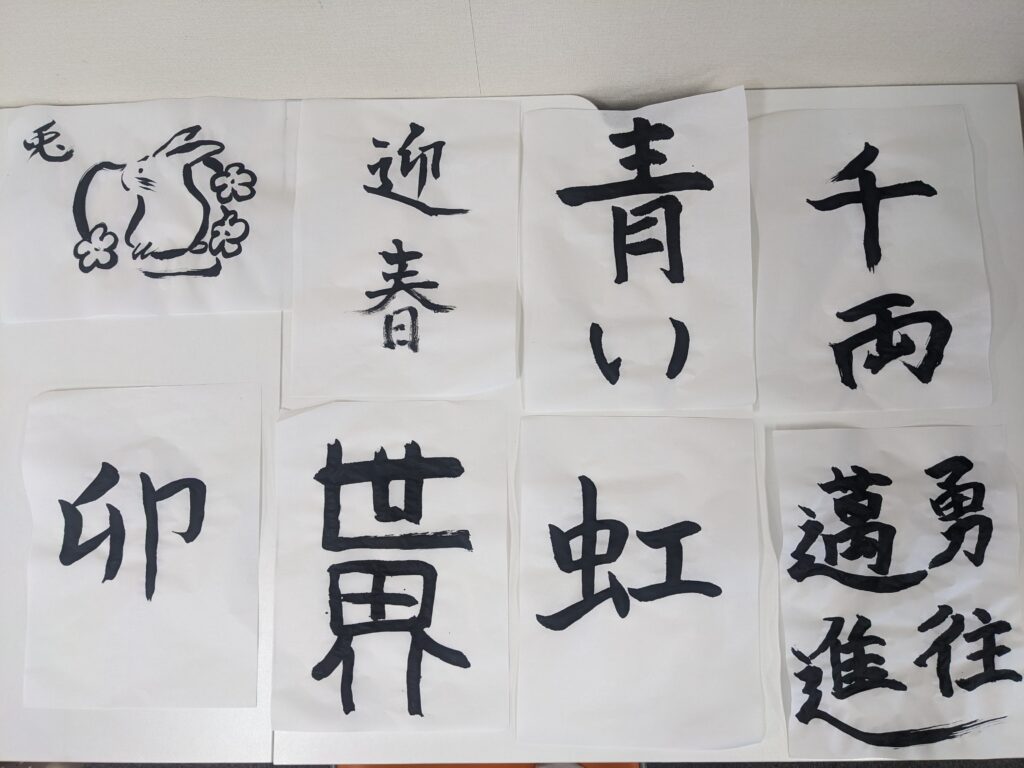 兎
迎
春
青
い
千
両
卯
世
界
虹
勇往
邁進